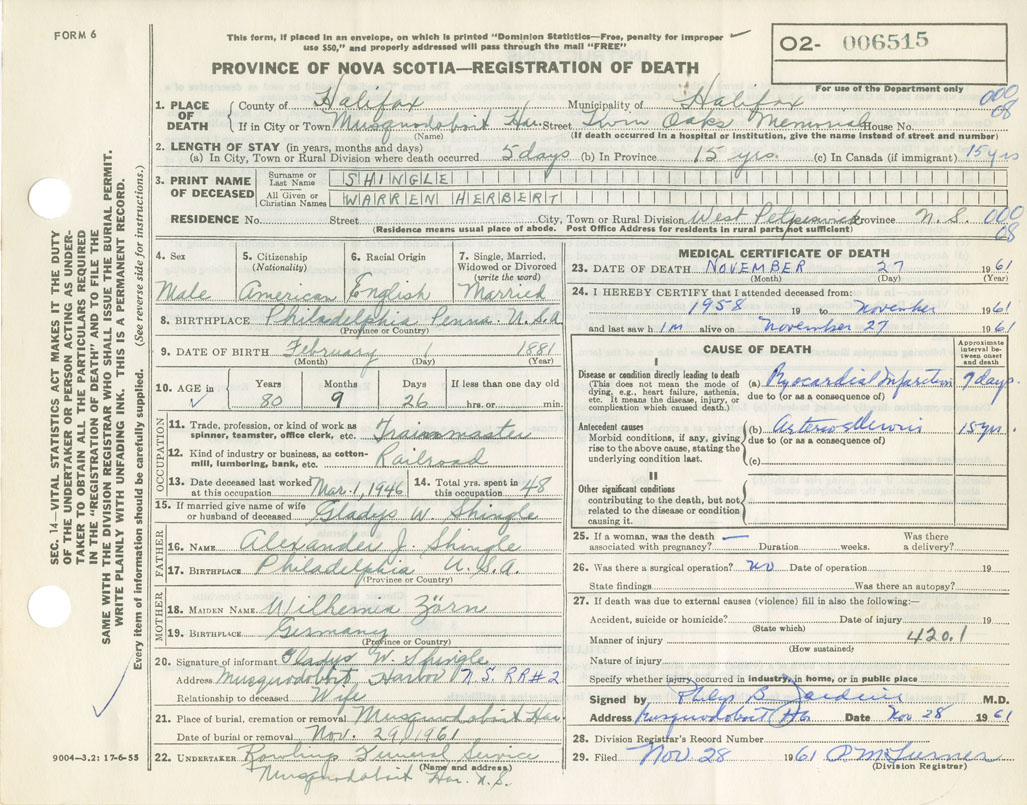 FORM 6
This form, if placed in an envelope, on which is printed "Dominion Statistics—Free, penalty for improper
use $50," and properly addressed will pass through the mail "FREE"
O2- 006515
For use of the Department only
PROVINCE OF NOVA SCOTIA—REGISTRATION OF DEATH
SEC. 14—VITAL STATISTICS ACT MAKES IT THE DUTY
OF THE UNDERTAKER OR PERSON ACTING AS UNDER-
TAKER TO OBTAIN ALL THE PARTICULARS REQUIRED
IN THE "REGISTRATION OF DEATH" AND TO FILE THE
SAME WITH THE DIVISION REGISTRAR WHO SHALL ISSUE THE BURIAL PERMIT.
WRITE PLAINLY WITH UNFADING INK. THIS IS A PERMANENT RECORD.
Every item of information should be carefully supplied. (See reverse side for instructions.)
1. PLACE OF DEATH County of Halifax Municipality of Halifax 000 08
If in City or Town Musquodoboit Har. Street Twin Oaks Memorial House No.
(Name) (If death occurred in a hospital or institution, give the name instead of street and number)
2. LENGTH OF STAY (in years, months and days)
(a) In City, Town or Rural Division where death occurred 5 days (b) In Province 15 yrs. (c) In Canada (if immigrant) 15 yrs
3. PRINT NAME OF DECEASED Surname or Last Name SHINGLE
All Given or Christian Names WARREN HERBERT
RESIDENCE No. Street City, Town or Rural Division West Petpeswick Province N.S. 000 08
(Residence means usual place of abode. Post Office Address for residents in rural parts not sufficient)
4. Sex Male
5. Citizenship (Nationality) American
6. Racial Origin English
7. Single, Married, Widowed or Divorced (write the word) Married
8. BIRTHPLACE Philadelphia Penna. U.S.A
(Province or Country)
9. DATE OF BIRTH February 1 1881
(Month) (Day) (Year)
10. AGE in Years 80 Months 9 Days 26 If less than one day old hrs. or min.
OCCUPATION
11. Trade, profession, or kind of work as spinner, teamster, office clerk, etc. Trainmaster
12. Kind of industry or business, as cotton-mill, lumbering, bank, etc. Railroad
13. Date deceased last worked at this occupation Mar. 1, 1946 14. Total yrs. spent in this occupation 48
15. If married give name of wife or husband of deceased Gladys W. Shingle
FATHER
16. NAME Alexander J. Shingle
17. BIRTHPLACE Philadelphia U.S.A.
(Province or Country)
MOTHER
18. MAIDEN NAME Wilhemia Zörn
19. BIRTHPLACE Germany
(Province or Country)
20. Signature of informant Gladys W. Shingle
Address Musquodoboit Harbor N.S. RR#2
Relationship to deceased Wife
21. Place of burial, cremation or removal Musquodoboit Har.
Date of burial or removal Nov. 29, 1961
22. UNDERTAKER Funeral Service
(Name and address)
Musquodoboit Har. N.S.
9004—3.2: 17-6-55
MEDICAL CERTIFICATE OF DEATH
23. DATE OF DEATH NOVEMBER 27 1961
(Month) (Day) (Year)
24. I HEREBY CERTIFY that I attended deceased from:
1958 19 to November 1961
and last saw him alive on November 27 1961
CAUSE OF DEATH
Approximate interval between onset and death
I
Disease or condition directly leading to death
(This does not mean the mode of dying, e.g., heart failure, asthenia, etc. It means the disease, injury, or complication which caused death.)
(a) Myocardial Infarction 7 days.
due to (or as a consequence of)
Antecedent causes
Morbid conditions, if any, giving rise to the above cause, stating the underlying condition last.
(b) 15 yrs.
due to (or as a consequence of)
(c)
II
Other significant conditions
contributing to the death, but not related to the disease or condition causing it.
25. If a woman, was the death associated with pregnancy? — Duration weeks. Was there a delivery?
26. Was there a surgical operation? no Date of operation 19
State findings Was there an autopsy?
27. If death was due to external causes (violence) fill in also the following:—
Accident, suicide or homicide? Date of injury 19
(State which)
420.1
Manner of injury
(How sustained)
Nature of injury
Specify whether injury occurred in industry, in home, or in public place
Signed by Philip B. M.D.
Address Musquodoboit Hbr Date Nov 28 1961
28. Division Registrar's Record Number
29. Filed Nov. 28 1961
(Division Registrar)